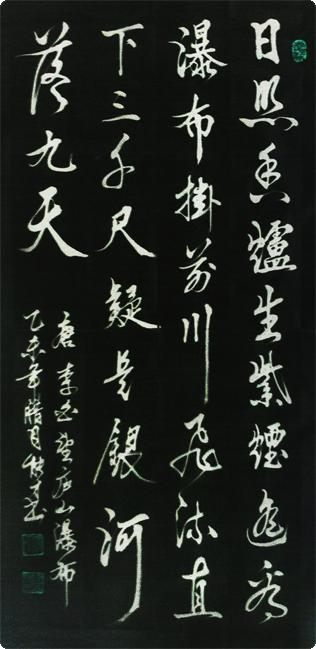 日照香爐生紫煙遙看
瀑布掛前川飛流直
下三千尺疑是銀河
落九天
唐李白望庐山瀑布
乙未年腊月